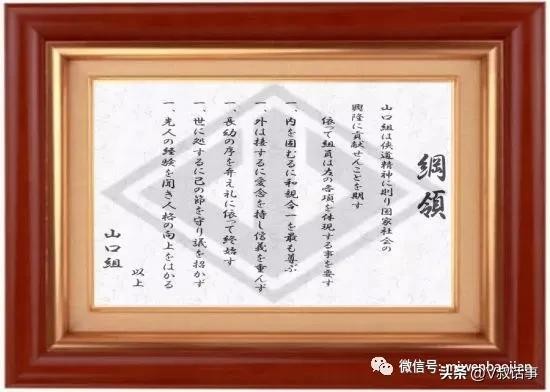 綱領
山口組は侠道精神に則り国家社会の
興隆に貢献せんことを期す
依って組員は左の各項を体現する事を要す
一、内を固むるに和親合一を最も尊ぶ
一、外は接するに愛念を持し信義を重んず
一、長幼の序を弁え礼に依って終始す
一、世に処するに己の節を守り議を招かず
一、先人の経験を聞き人格の向上をはかる
以上
山口組
微信号: miwenbaojian
头条 @V叔话事